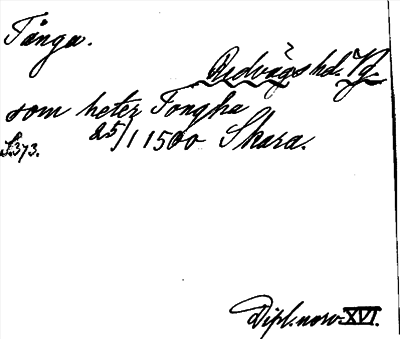 Tånga.
Redvägs hd. Vg.
som heter Tongha
S. 373. 25/1 1500 Skara.
Dipl. norv. XVI.